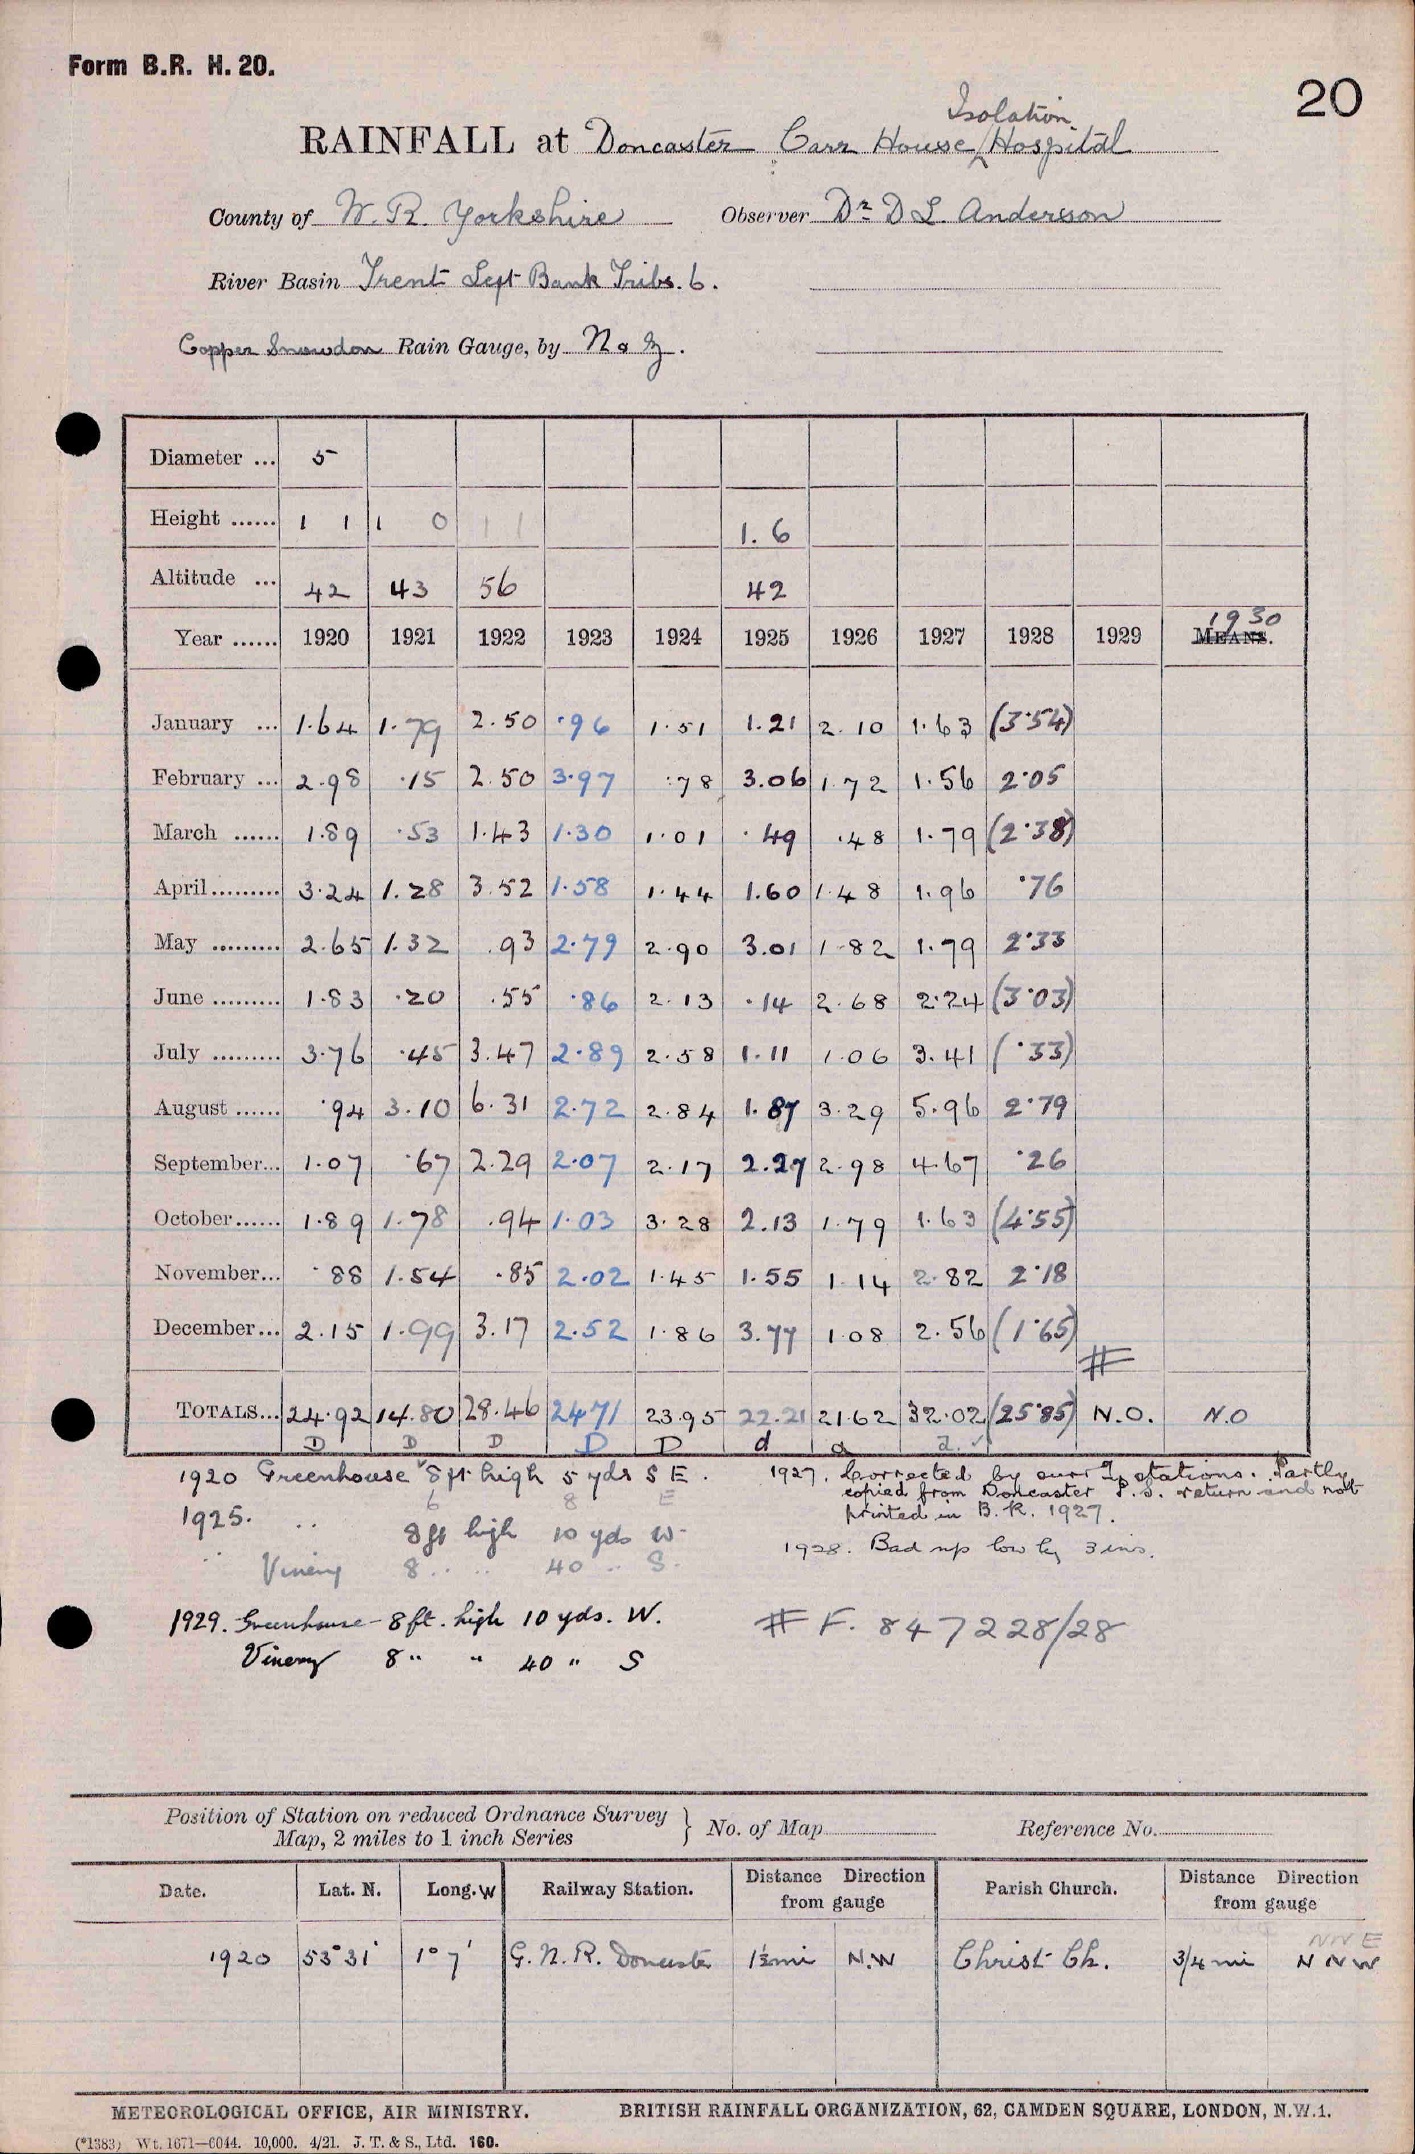 Form B.R. H. 20.
20
Isolation
RAINFALL at Doncaster Carr House Hospital
County of W. R. Yorkshire Observer Dr D L. Anderson
River Basin Trent Left Bank Tribs. 6.
Copper Snowdon Rain Gauge, by N & Z.
Diameter ... 5
Height ...... 1 1 1 0 1 1 1. 6
Altitude ... 42 43 56 42
Year ...... 1920 1921 1922 1923 1924 1925 1926 1927 1928 1929 MEANS. 1930
January ... 1.64 1.79 2.50 .96 1.51 1.21 2.10 1.63 (3.54)
February ... 2.98 .15 2.50 3.97 .78 3.06 1.72 1.56 2.05
March ...... 1.89 .53 1.43 1.30 1.01 .49 .48 1.79 (2.38)
April ......... 3.24 1.28 3.52 1.58 1.44 1.60 1.48 1.96 .76
May ......... 2.65 1.32 .93 2.79 2.90 3.01 1.82 1.79 2.33
June ......... 1.83 .20 .55 .86 2.13 .14 2.68 2.24 (3.03)
July ......... 3.76 .45 3.47 2.89 2.58 1.11 1.06 3.41 (.33)
August ...... .94 3.10 6.31 2.72 2.84 1.87 3.29 5.96 2.79
September... 1.07 .67 2.29 2.07 2.17 2.27 2.98 4.67 .26
October...... 1.89 1.78 .94 1.03 3.28 2.13 1.79 1.63 (4.55)
November... .88 1.54 .85 2.02 1.45 1.55 1.14 2.82 2.18
December... 2.15 1.99 3.17 2.52 1.86 3.77 1.08 2.56 (1.65)
#
TOTALS... 24.92 14.80 28.46 24.71 23.95 22.21 21.62 32.02 (25.85) N.O. N.O
D D D D D d a a. ✓
1920 Greenhouse 8 ft high 5 yds S E.
6 8 E
1925. .. 8 ft high 10 yds W.
.. Vinery 8 .. .. 40 .. S.
1929. Greenhouse 8 ft. high 10 yds. W.
Vinery 8 " " 40 " S
1927. Corrected by surr g stations. Partly
copied from Doncaster P. S. return and not
printed in B. R. 1927.
1928. Bad up low by 3 ins.
# F. 847228/28
Position of Station on reduced Ordnance Survey
Map, 2 miles to 1 inch Series } No. of Map Reference No.
Date. Lat. N. Long. W Railway Station. Distance Direction from gauge Parish Church. Distance Direction from gauge
NNE
1920 53° 31' 1° 7' G. N. R. Doncaster 1½ mi N.W Christ Ch. 3/4 mi N N W
METEOROLOGICAL OFFICE, AIR MINISTRY. BRITISH RAINFALL ORGANIZATION, 62, CAMDEN SQUARE, LONDON, N.W.1.
(*1383) Wt. 1671—6044. 10,000. 4/21. J. T. & S., Ltd. 160.